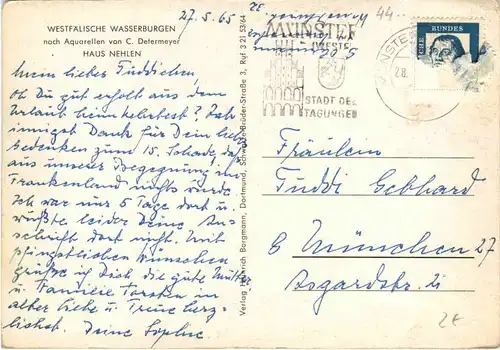 27.5.65
WESTFÄLISCHE WASSERBURGEN
nach Aquarellen von C. Determeyer
HAUS NEHLEN
Mein lieber Fuddichen,
ob Du gut erholt aus dem
Urlaub heimkehrtest? Hab
innigst Dank für Dein lieb
Gedenken zum 15. Schade, daß
aus unserer Begegnung im
Frankenland nichts wurde.
Ich war nur 5 Tage dort u.
wußte leider Deine An-
schrift dort nicht. Mit
pfingstlichen Wünschen
grüße ich Dich die gute Mutter
u. Familie Torsten in
alter Liebe u. Treue herz-
lichst. Deine Sophie
Verlag Heinrich Borgmann, Dortmund, Schwarze-Brüder-Straße 3, Ruf 3 21 53/64
44
MÜNSTER
(WESTF)
STADT DER
TAGUNGEN
MÜNSTER
28.
BUNDES
Fräulein
Fuddi Gebhard
8 München 27
Asgardstr. 2